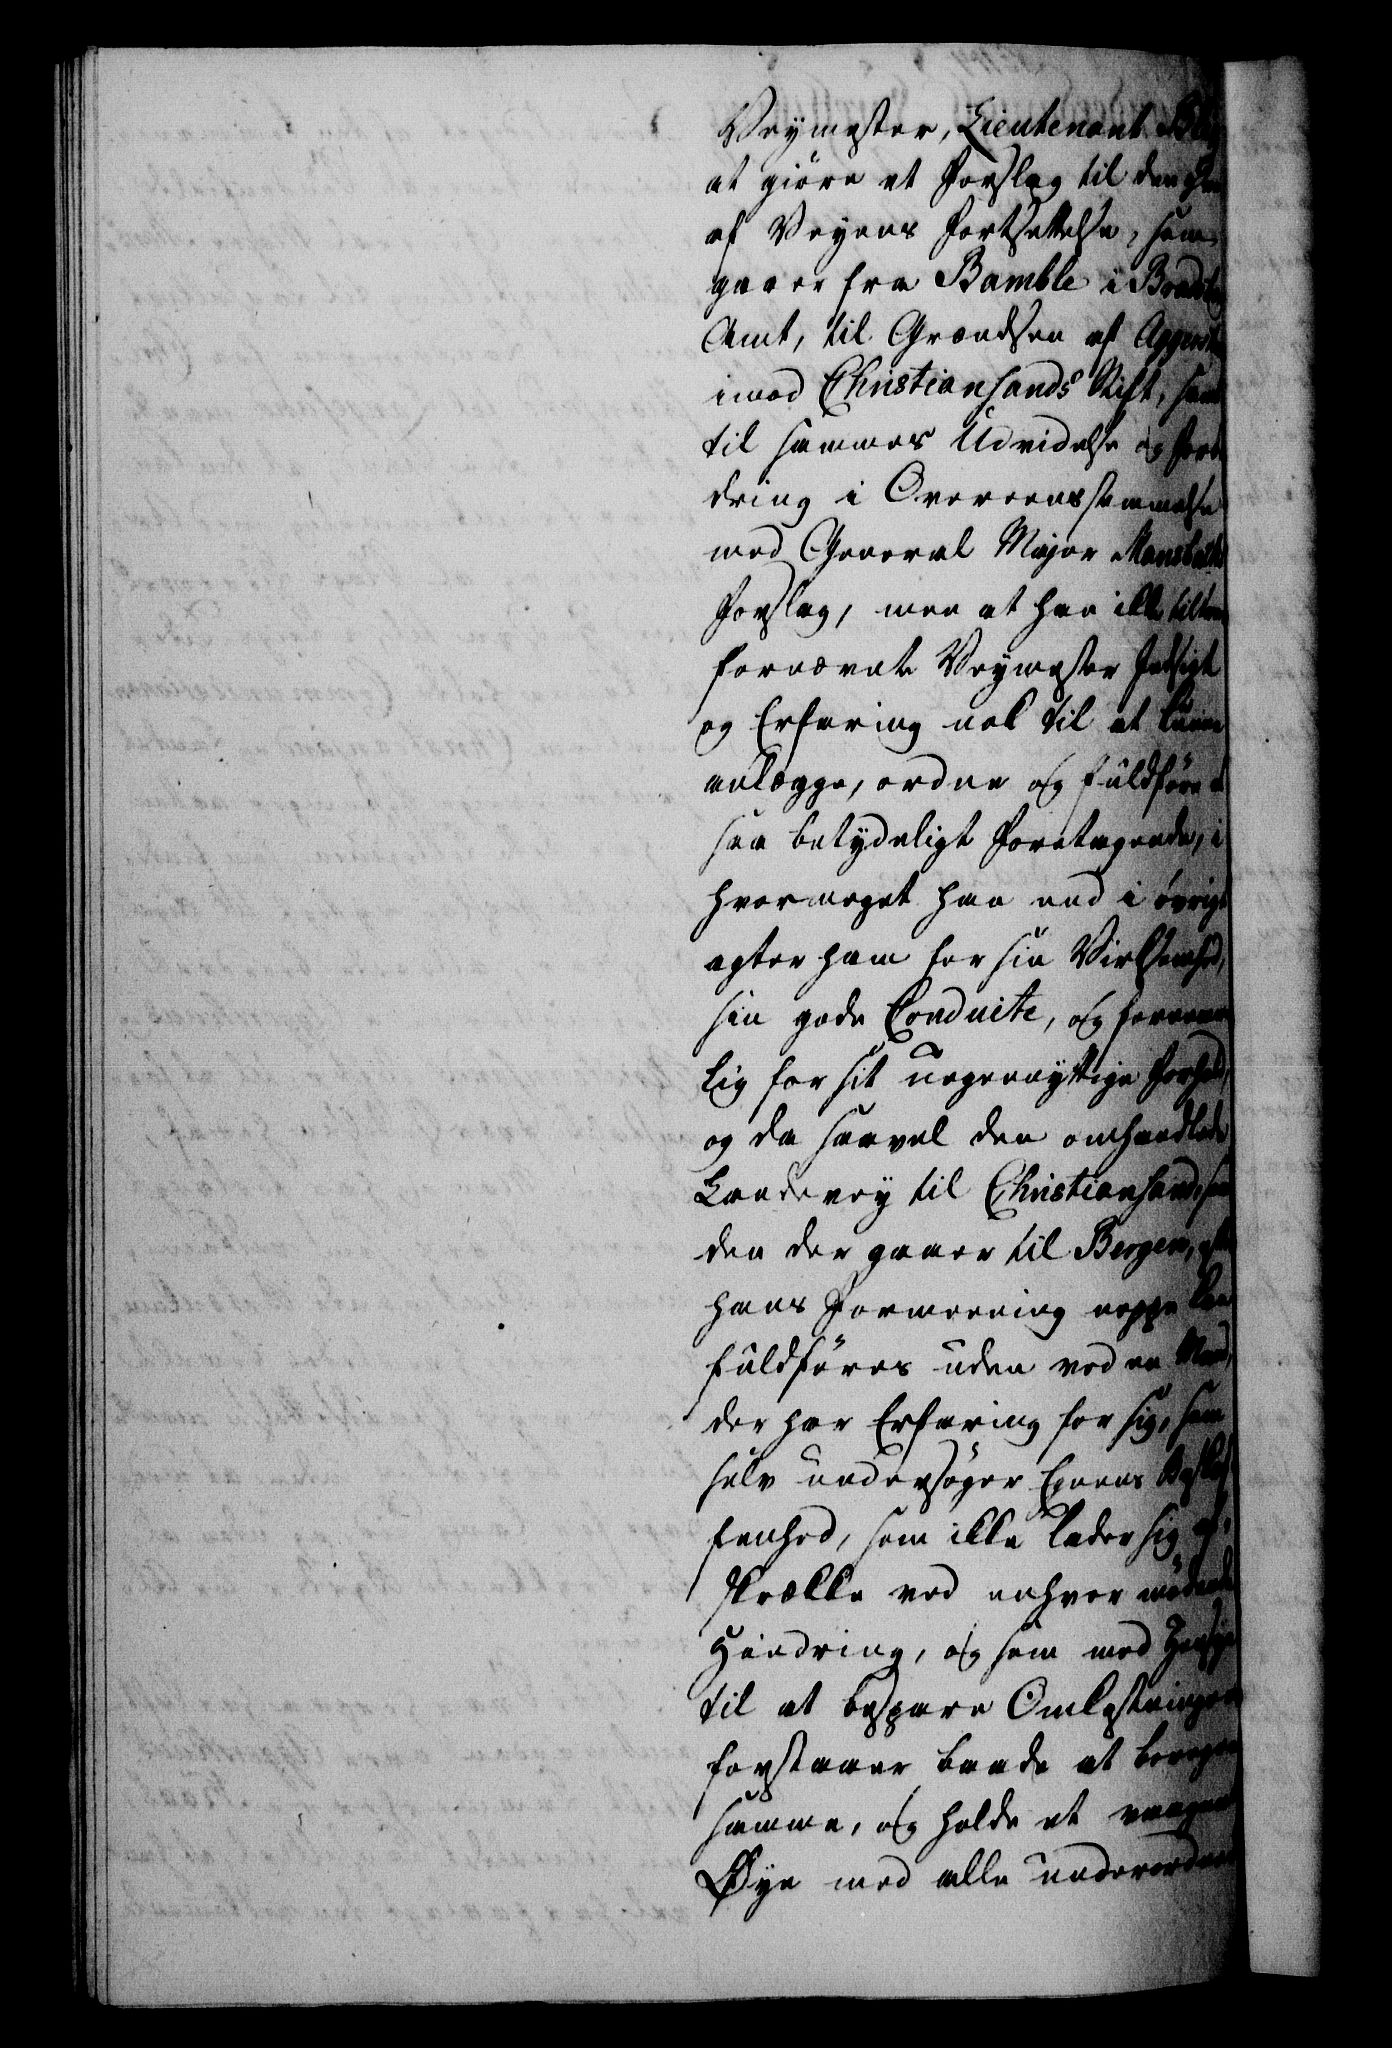 Veymester, Lieutenant
at giøre et Forslag til den
af Veyens Fortsettelse, som
gaaer fra Bamble i Bradsberg
Amt, til Grændsen af Aggers
imod Christiansands Stift, samt
til sammes Udvidelse og Forbe
dring i Overeensstemmelse
med General Major Mansbachs
Forslag, men at han ikke tiltroer
fornævnte Veymester Indsigt
og Erfaring nok til at kunne
anlægge, ordne og fuldføre et
saa betydeligt Foretagende, i
hvormeget han end i øvrigt
agter ham for sin Virksomhed,
sin gode Conduite, og fornem
lig for sit uegennyttige Forhold,
og da saavel den omhandlede
Landevey til Christiansand, som
den der gaaer til Bergen, efter
hans Formeening neppe kan
fuldføres uden ved en Mand,
der har Erfaring for sig, som
selv undersøger Egnens Beskaf
fenhed, som ikke lader sig af
skrække ved enhver mødende
Hindring, og som med Hensyn
til at bespare Omkostninger
forstaaer baade at beregne
samme, og holde et vaagent
Øye med alle underordnede